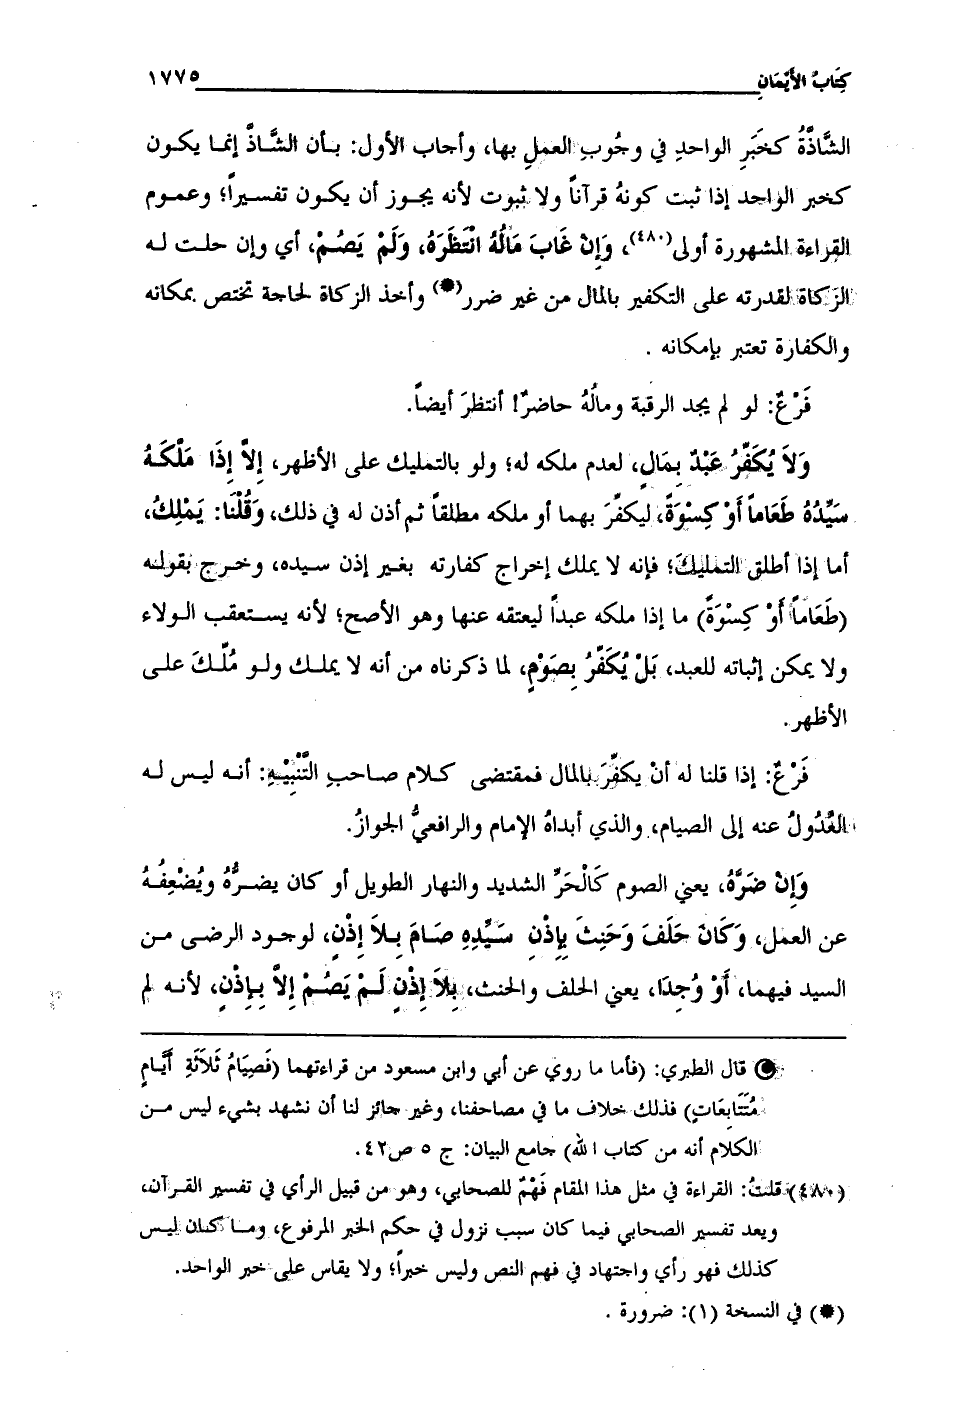 كِتَابُ الأَيْمَانِ ١٧٧٥
الشَّاذَّةُ كخَبَرِ الواحدِ في وجُوبِ العملِ بها، وأجاب الأول: بأن الشاذَّ إنما يكون
كخبر الواحد إذا ثبت كونهُ قرآناً ولا ثبوت لأنه يجوز أن يكون تفسيراً؛ وعموم
القراءة المشهورة أولى(٤٨٠)، وَإِنْ غَابَ مَالُهُ انْتَظَرَهُ، وَلَمْ يَصُمْ، أي وإن حلت له
الزكاة لقدرته على التكفير بالمال من غير ضرر(*) وأخذ الزكاة لحاجة تختص بمكانه
والكفارة تعتبر بإمكانه .
فَرْعٌ: لو لم يجد الرقبة ومالُهُ حاضرٌ! أنتظرَ أيضاً.
وَلاَ يُكَفِّرُ عَبْدٌ بِمَالٍ، لعدم ملكه له؛ ولو بالتمليك على الأظهر، إِلاَّ إِذَا مَلَّكَهُ
سَيِّدُهُ طَعَاماً أَوْ كِسْوَةً، ليكفِّرَ بهما أو ملكه مطلقاً ثم أذن له في ذلك، وَقُلْنَا: يَمْلِكُ،
أما إذا أطلق التمليكَ؛ فإنه لا يملك إخراج كفارته بغير إذن سيده، وخرج بقوله
(طَعَاماً أَوْ كِسْوَةً) ما إذا ملكه عبداً ليعتقه عنها وهو الأصح؛ لأنه يستعقب الولاء
ولا يمكن إثباته للعبد، بَلْ يُكَفِّرُ بِصَوْمٍ، لما ذكرناه من أنه لا يملك ولو مُلِّكَ على
الأظهر.
فَرْعٌ: إذا قلنا له أنْ يكفِّرَ بالمال فمقتضى كلام صاحبِ التَّنْبِيْهِ: أنه ليس له
العُدُولُ عنه إلى الصيام، والذي أبداهُ الإمام والرافعيُّ الجوازُ.
وَإِنْ ضَرَّهُ، يعني الصوم كَالْحَرِّ الشديد والنهار الطويل أو كان يضرُّهُ ويُضْعِفُهُ
عن العمل، وَكَانَ حَلَفَ وَحَنِثَ بِإِذْنِ سَيِّدِهِ صَامَ بِلاَ إِذْنٍ، لوجود الرضى من
السيد فيهما، أَوْ وُجِدَا، يعني الحلف والحنث، بِلاَ إِذْنٍ لَمْ يَصُمْ إِلاَّ بِإِذْنٍ، لأنه لم
قال الطبري: (فأما ما روي عن أبي وابن مسعود من قراءتهما (فَصِيَامُ ثَلاَثَةِ أَيَّامٍ
مُتَتَابِعَاتٍ) فذلك خلاف ما في مصاحفنا، وغير جائز لنا أن نشهد بشيء ليس من
الكلام أنه من كتاب الله) جامع البيان: ج ٥ ص٤٢.
(٤٨٠) قلتُ: القراءة في مثل هذا المقام فَهْمٌ للصحابي، وهو من قبيل الرأي في تفسير القرآن،
ويعد تفسير الصحابي فيما كان سبب نزول في حكم الخبر المرفوع، وما كان ليس
كذلك فهو رأي واجتهاد في فهم النص وليس خبراً؛ ولا يقاس على خبر الواحد.
(*) في النسخة (١): ضرورة .